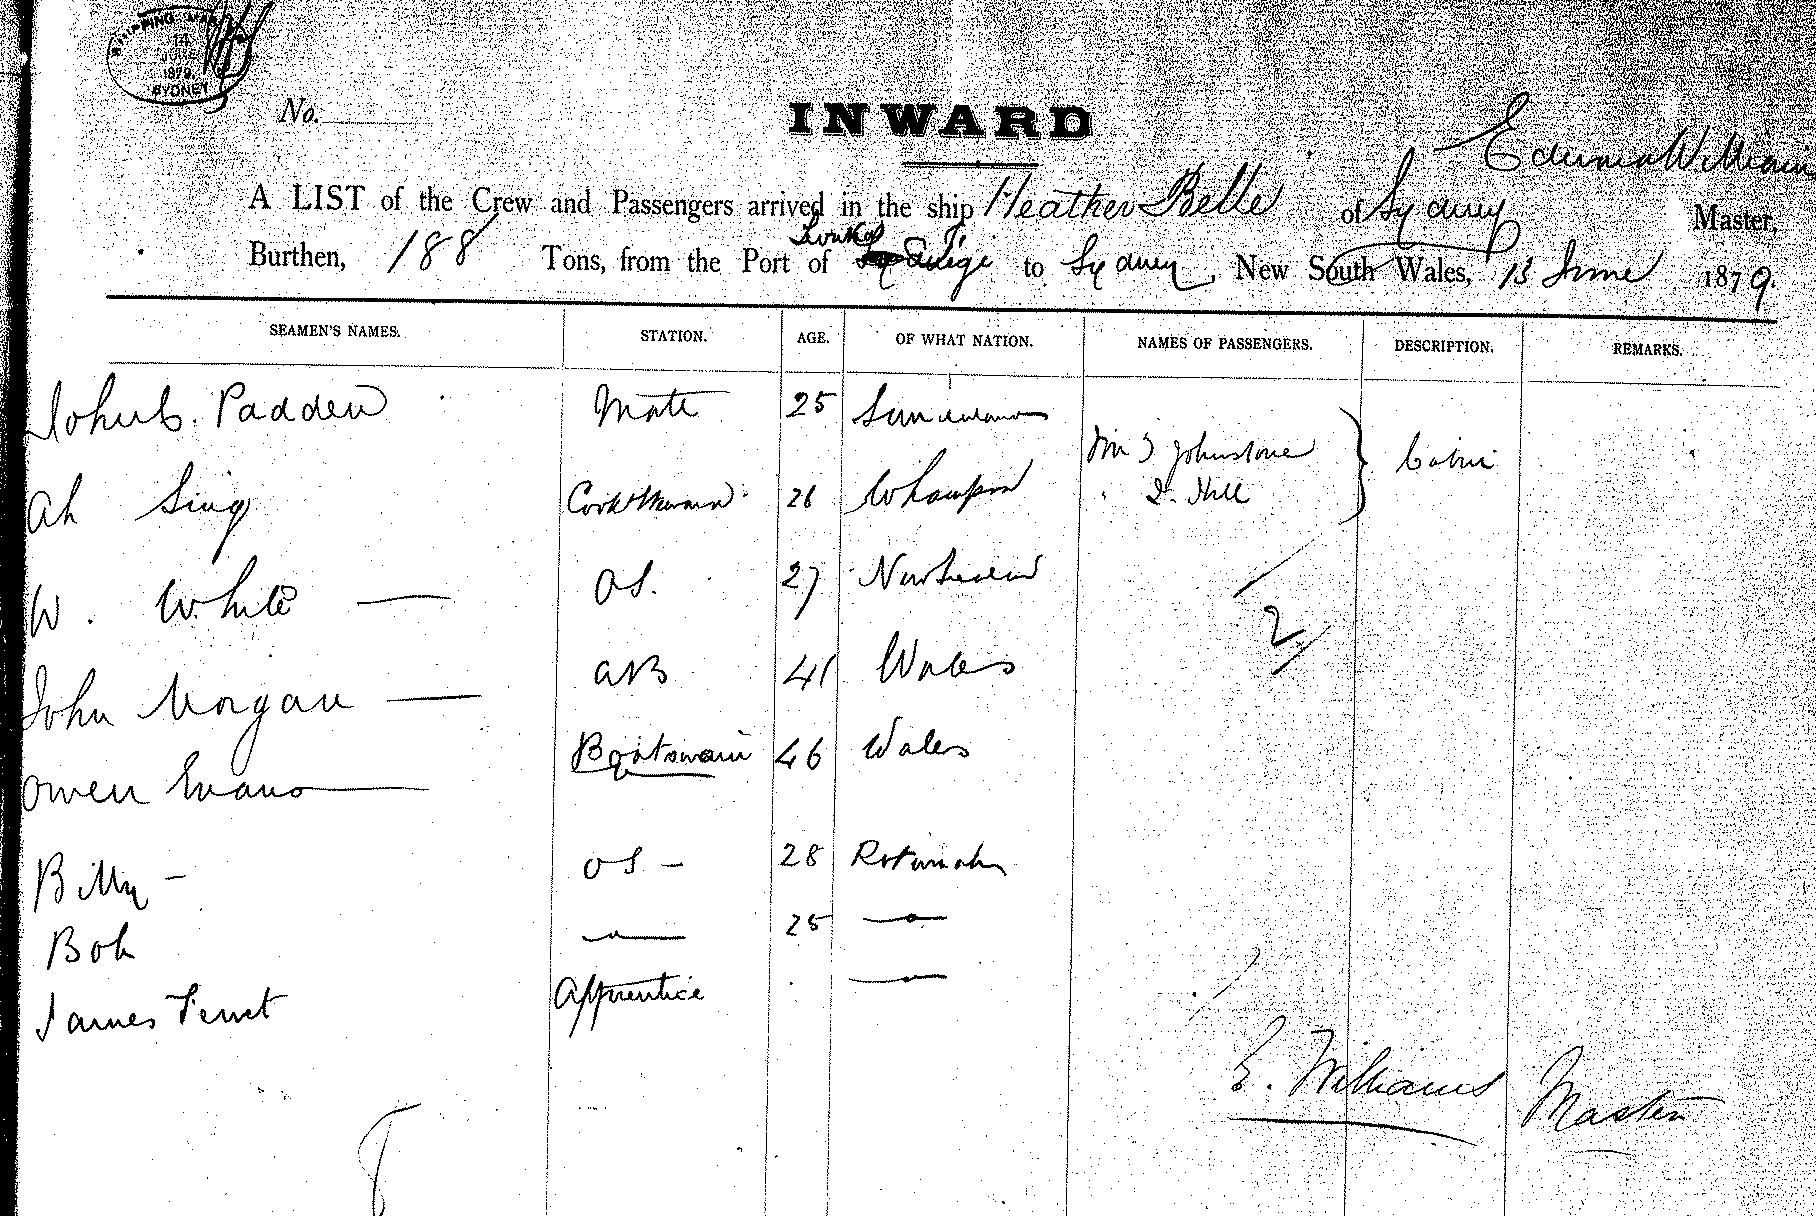 SHIPPING MAS
14
JUNE
1879
SYDNEY
No.
INWARD
Williams
A LIST of the Crew and Passengers arrived in the ship Heather Belle of Sydney Master,
Burthen, 188 Tons, from the Port of to Sydney, New South Wales, 13 June 1879.
SEAMEN'S NAMES. STATION. AGE. OF WHAT NATION. NAMES OF PASSENGERS. DESCRIPTION. REMARKS.
John C. Padden Mate 25
Mr J Johnstone Cabin
Ah Sing Cook & Steward 26 Whampoa
D. Hill
W. White OS. 27
2
John Morgan AB 41 Wales
Owen Evans Boatswain 46 Wales
Billy OS 28 Rotumah
Bob 25
James Apprentice
E. Williams Master
8